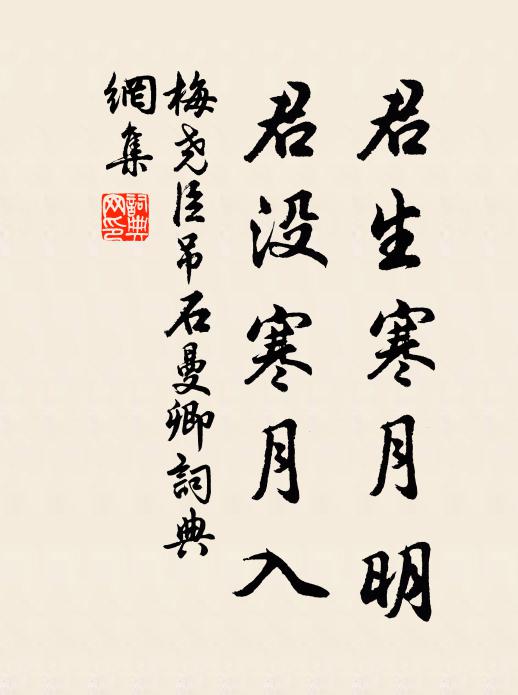 君生寒月明
君没寒月入
梅尧臣吊石曼卿詞典
網集
詞典
网印